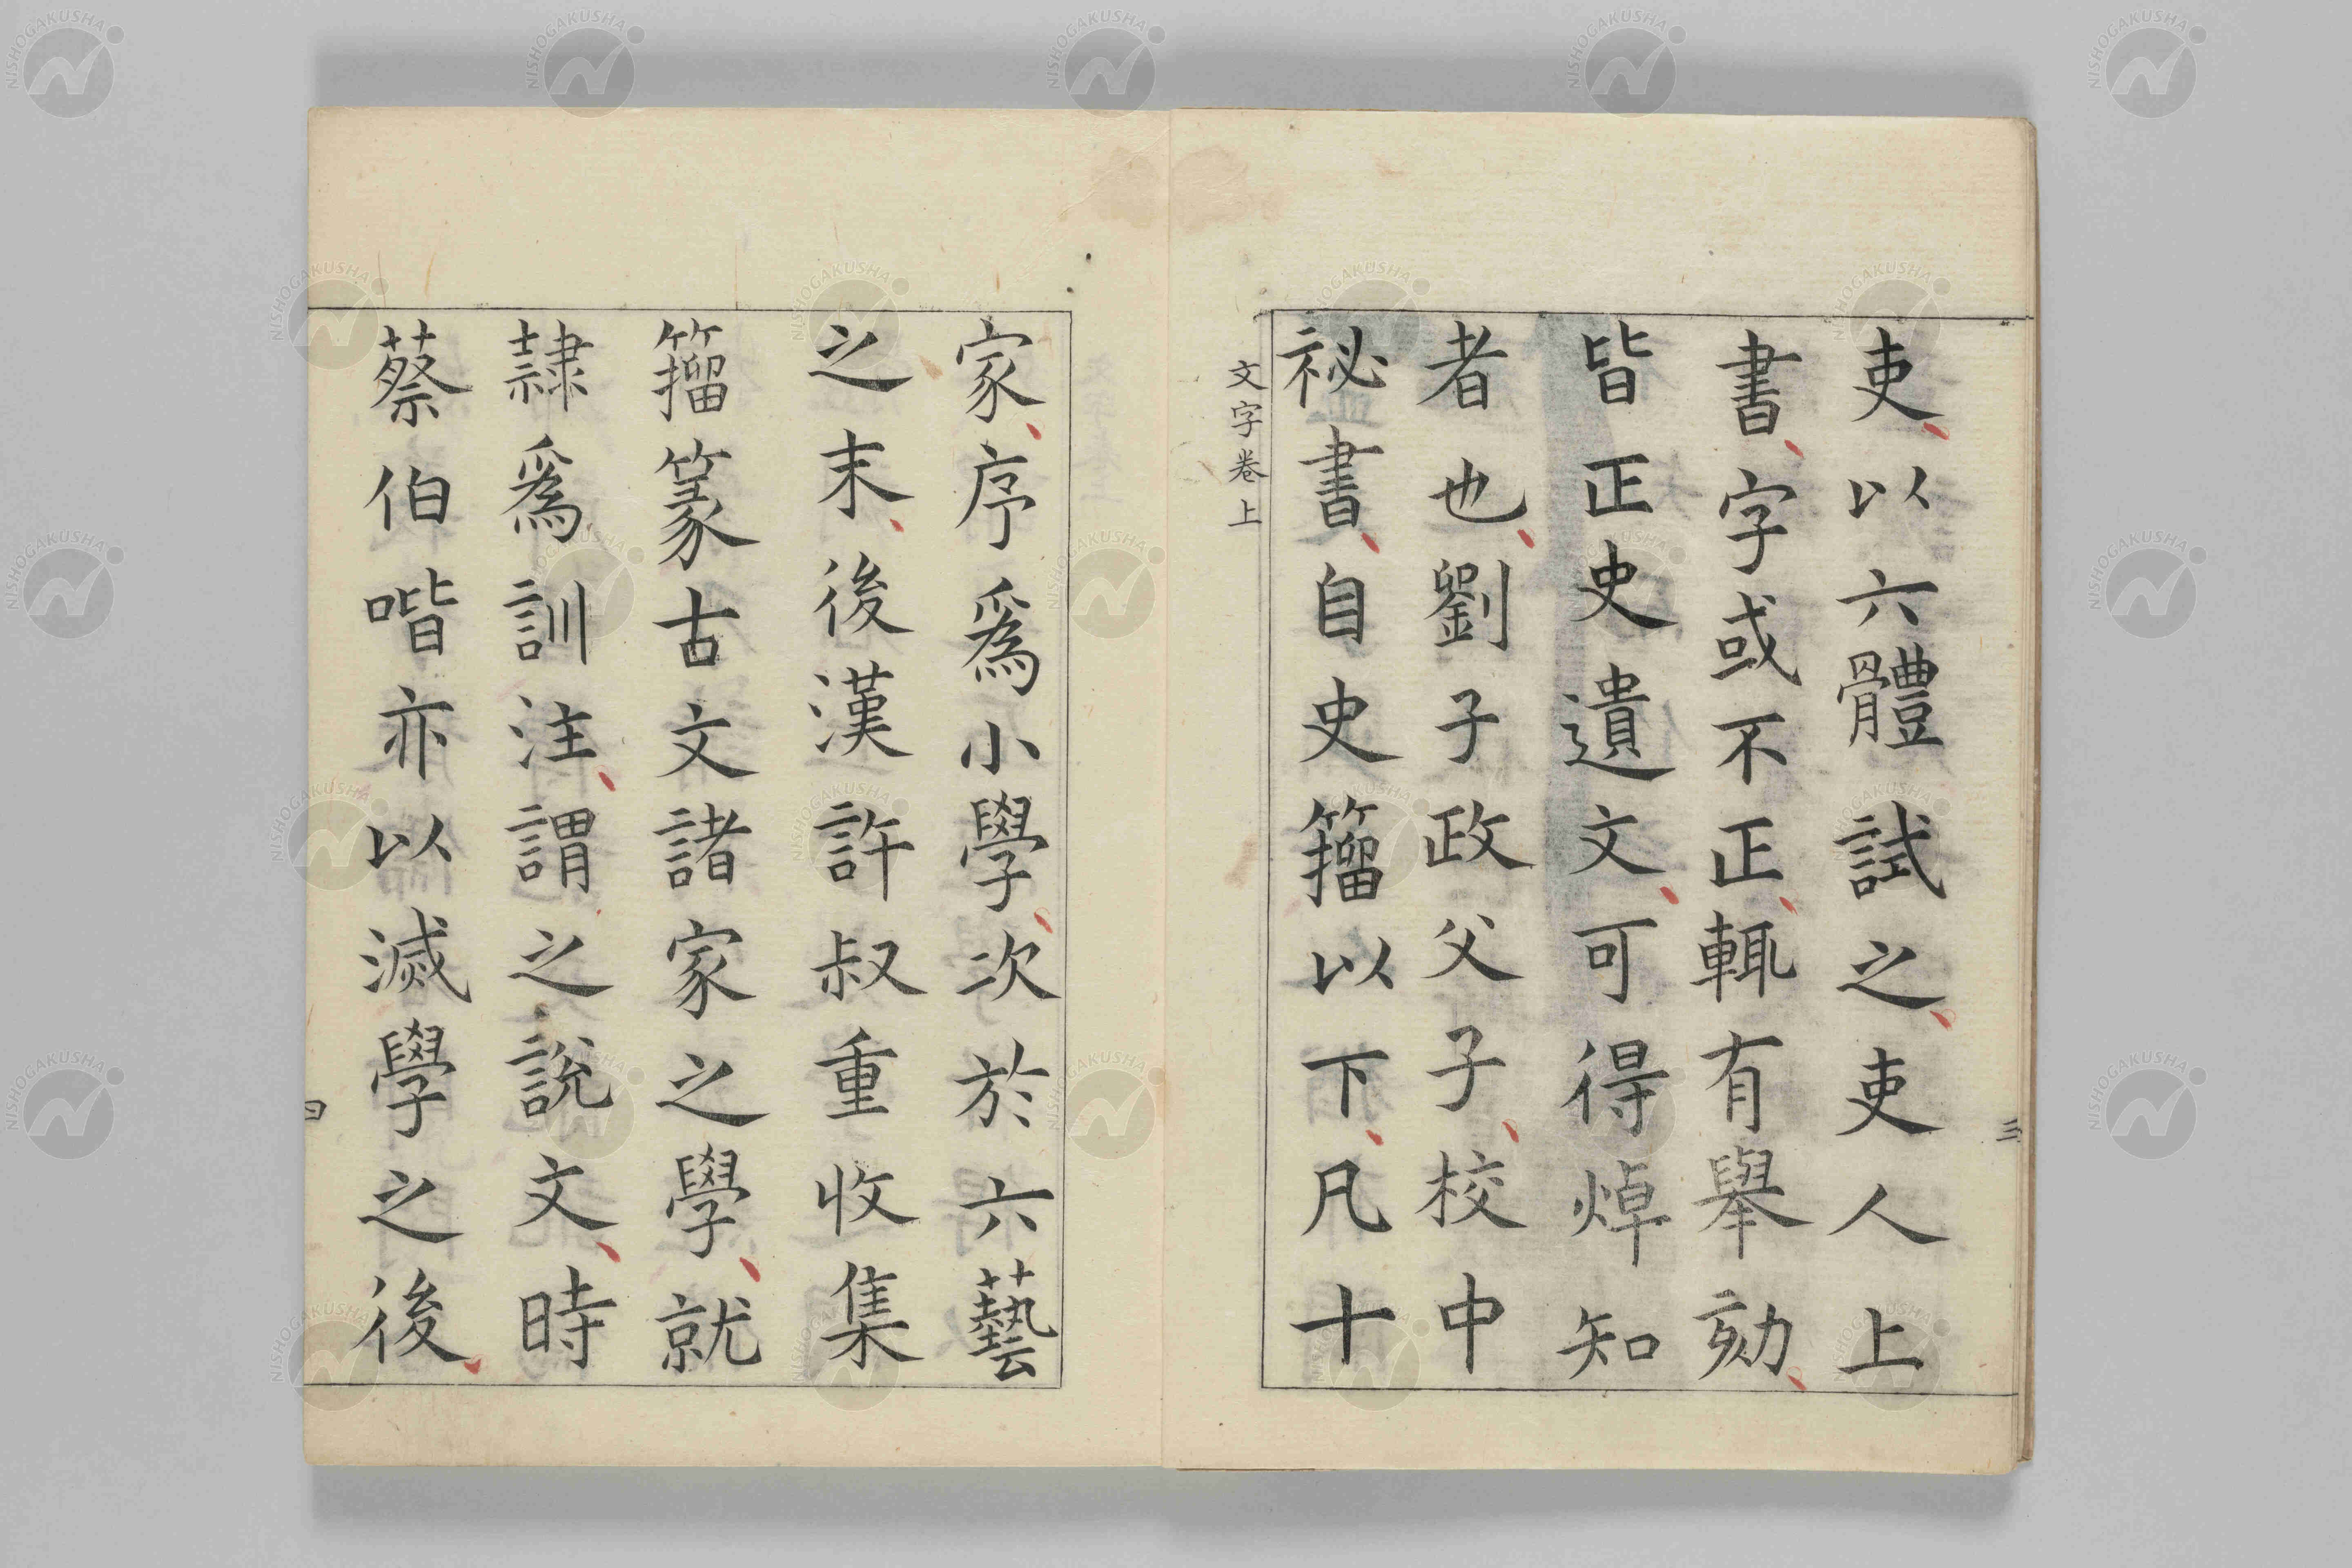 三
吏以六體試之吏人上
書字或不正輒有舉劾
皆正史遺文可得焯知
者也劉子政父子校中
祕書自史籀以下凡十
文字卷上
家序爲小學次於六藝
之末後漢許叔重收集
籀篆古文諸家之學就
隷爲訓注謂之說文時
蔡伯喈亦以滅學之後
四
NISHOGAKUSHA